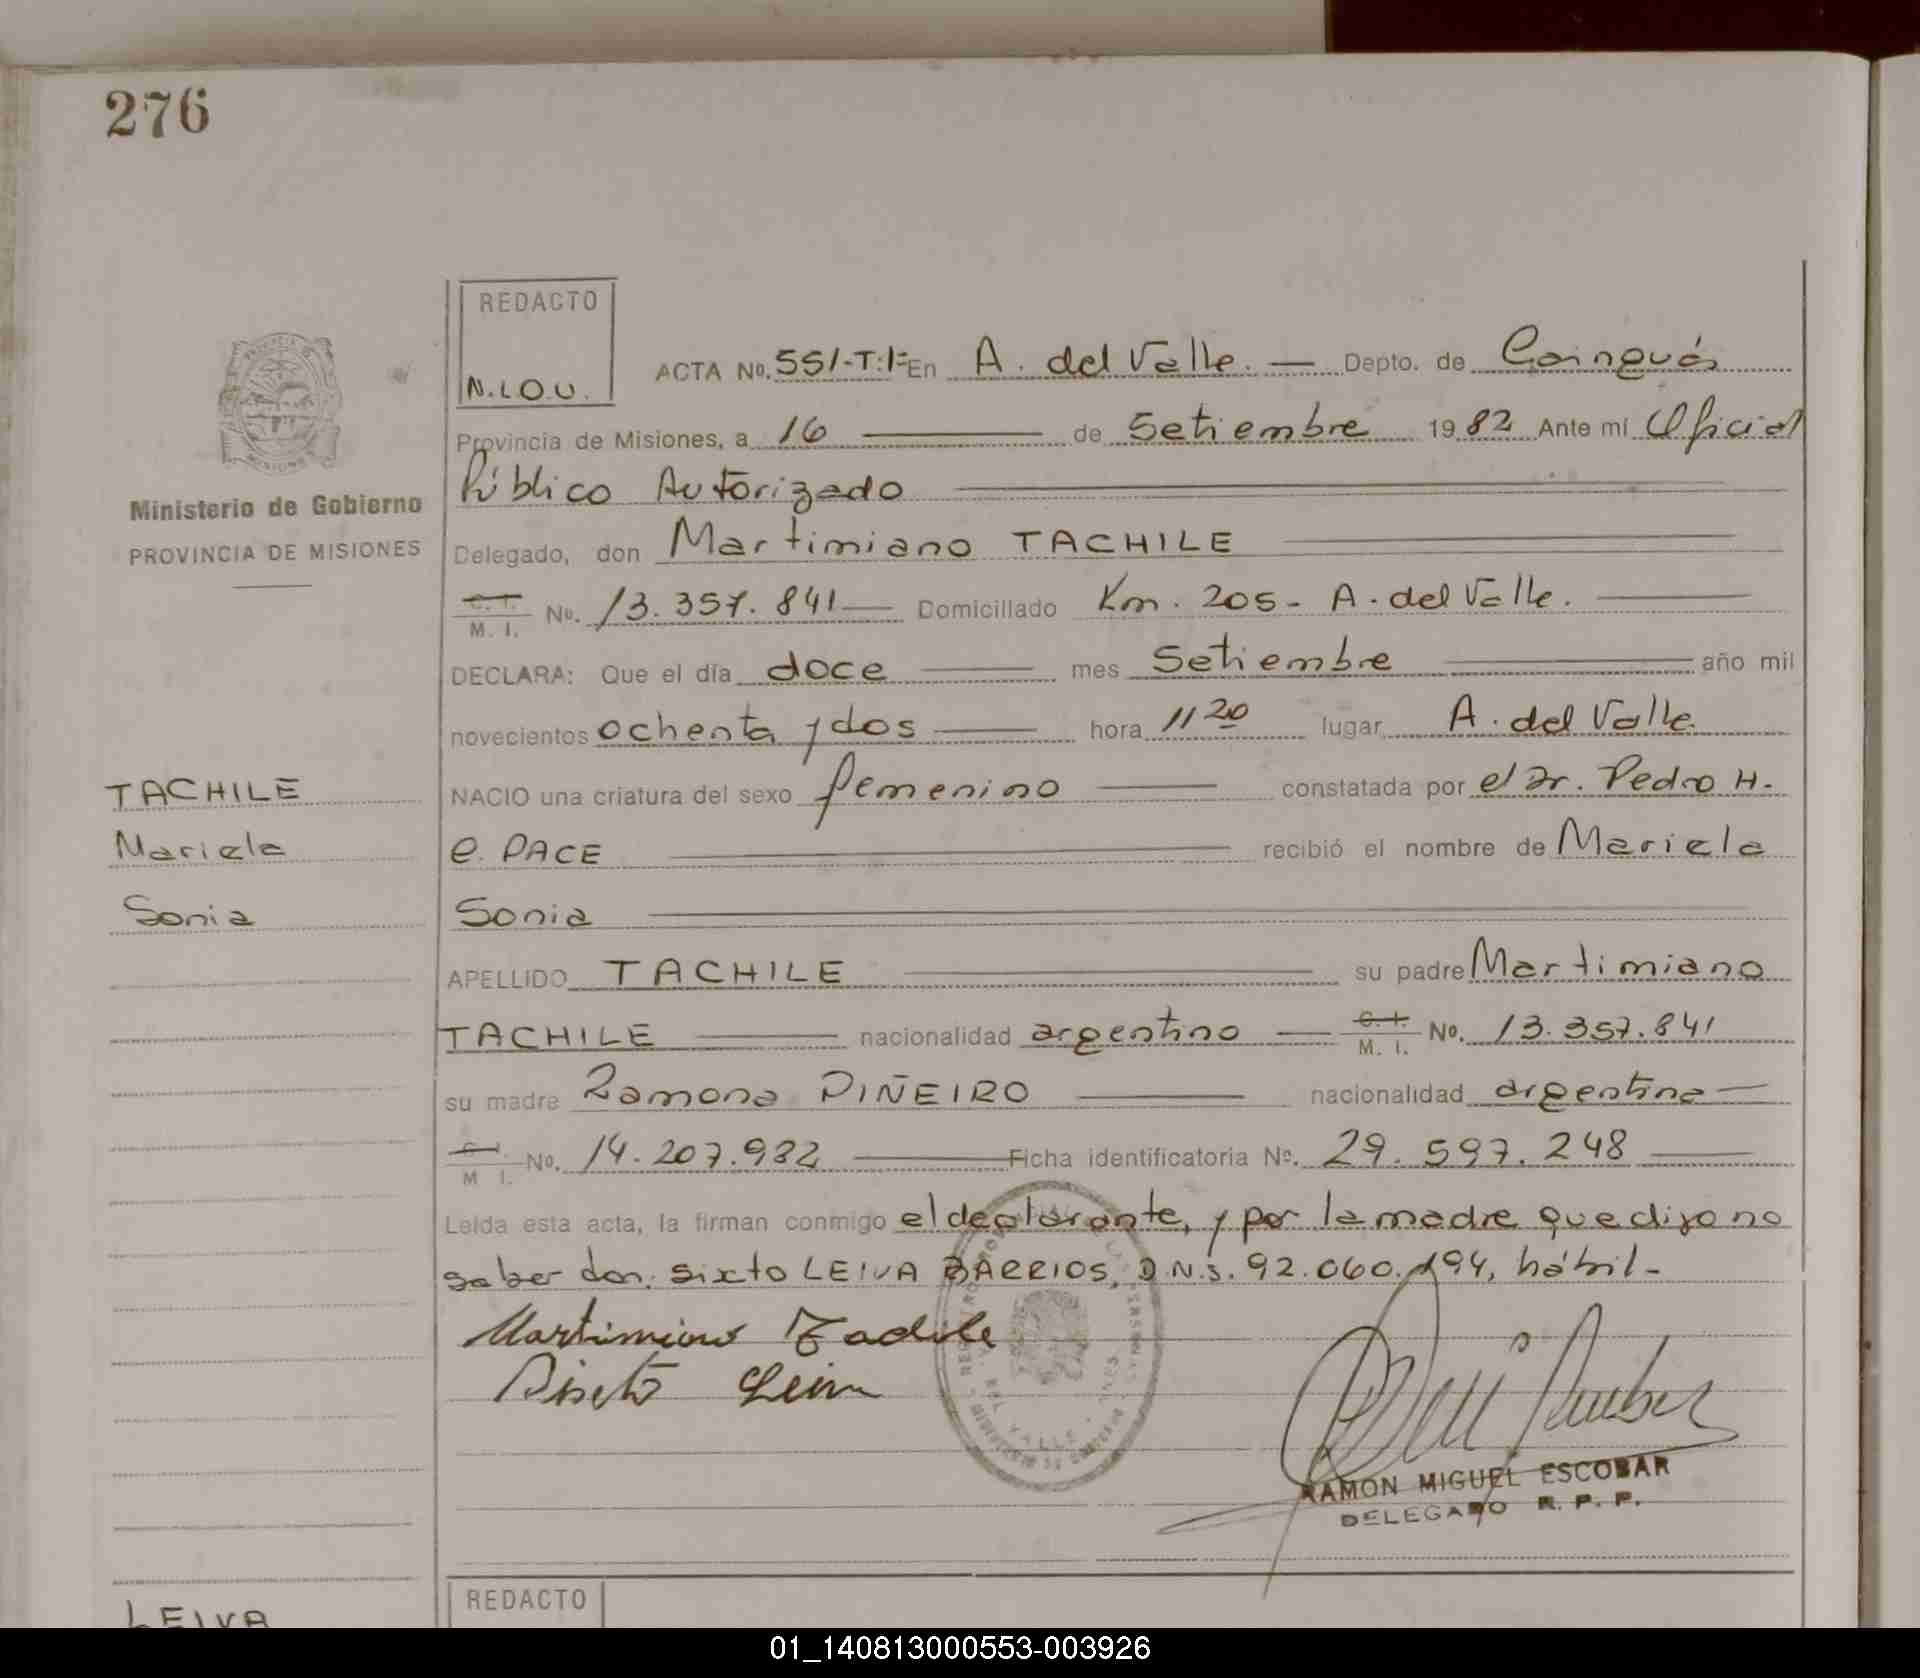 276
REDACTO
N.L.O.U.
ACTA No. 551-T:1= En A. del Valle. — Depto. de Cainguás
Provincia de Misiones, a 16 de Setiembre 1982 Ante mí Oficial
Público Autorizado
Delegado, don Martimiano TACHILE
C. I. M. I. No. 13.357.841 Domiciliado Km. 205- A. del Valle.
DECLARA: Que el día doce mes Setiembre año mil
novecientos ochenta y dos hora 11 20 lugar A. del Valle.
NACIO una criatura del sexo femenino constatada por el Dr. Pedro H.
C. PACE recibió el nombre de Mariela
Sonia
APELLIDO TACHILE su padre Martimiano
TACHILE nacionalidad argentino C. I. M. I. No. 13.357.841
su madre Ramona PIÑEIRO nacionalidad argentina
C. I. M I. No. 14.207.932 Ficha identificatoria No. 29.597.248
Leida esta acta, la firman conmigo el declarante, y por la madre que dijo no
saber don: Sixto LEIVA BARRIOS, D.N.I. 92.060.194, hábil-
Martimiano Tachile
Sixto Leiva
RAMON MIGUEL ESCOBAR
DELEGADO R. P. P.
Ministerio de Gobierno
PROVINCIA DE MISIONES
TACHILE
Mariela
Sonia
LEIVA
REDACTO
01_140813000553-003926